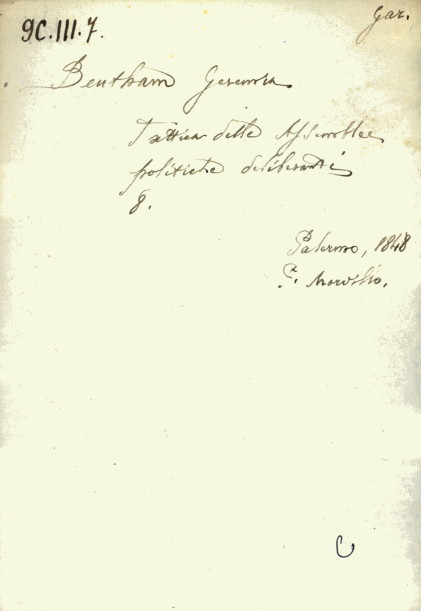 9C.III.7.
Gar.
Bentham Geremia
Tattica delle Assemblee
politiche deliberanti
8.
Palermo, 1848
Morvillo.